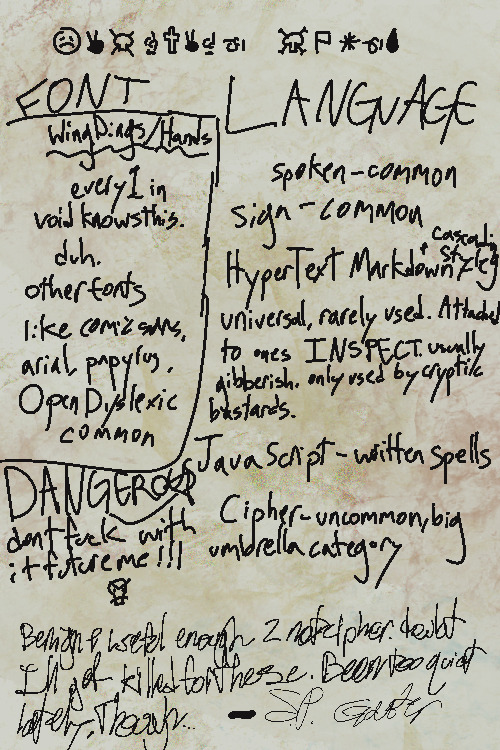 ☹✌☠☝🕆✌☝☜ ☠⚐❄☜💧
FONT
WingDings/Hands
every1 in
void knows this.
duh.
other fonts
like comic sans,
arial, papyrus,
OpenDyslexic
common
DANGEROUS
dont fuck with
it future me!!!
LANGUAGE
spoken-common
sign-common
HyperText Markdown + Cascading Styles
universal, rarely used. Attached
to ones INSPECT. usually
gibberish. only used by cryptic
bastards.
JavaScript-written spells
Cipher-uncommon, big
umbrella category
Benign & useful enough 2 not cipher. doubt
I'll get killed for these. Been too quiet
lately, Though...